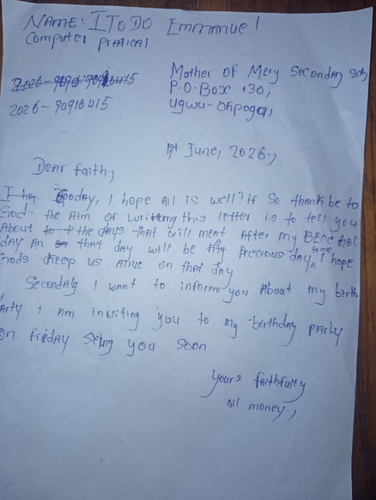 NAME: ITODO Emmanuel
Computer Pratical
Mother of Mery Secondary Sch,
P.O.Box 130,
2026-90916415
ugwu-Okpoga,
June, 2026.,
Dear faith,
Gooday, I hope All is well? if so thank be to
God. the Aim of writting this letter is to tell you
About the days that will ment After my BECE
day An that day will be precious day, I hope
Gods Keep us Alive on that day
Secondaly I want to inform you About my birth
Party I Am inviting you to my birthday party
On friday you soon
Yours faithfully
oil money.,